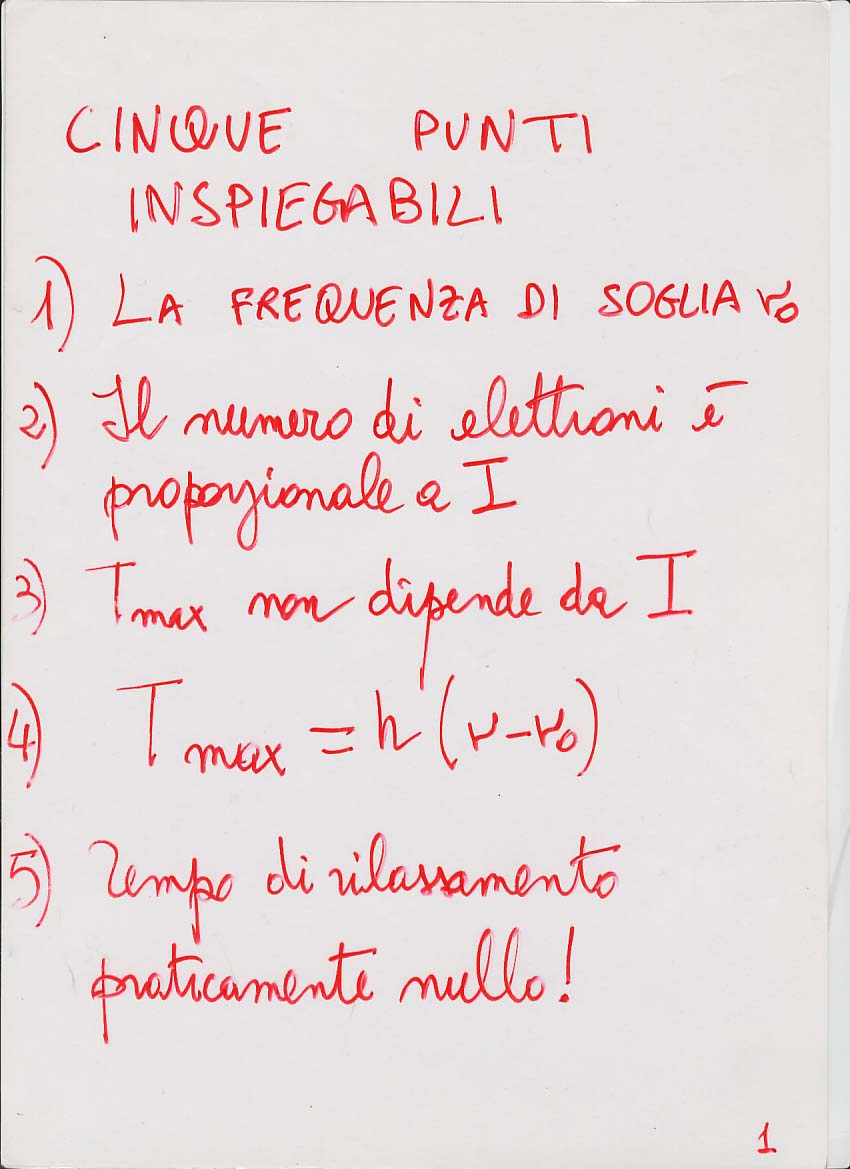 CINQUE PUNTI
INSPIEGABILI
1) LA FREQUENZA DI SOGLIA ν₀
2) Il numero di elettroni è
proporzionale a I
3) Tmax non dipende da I
4) Tmax = h (ν-ν₀)
5) Tempo di rilassamento
praticamente nullo!
1